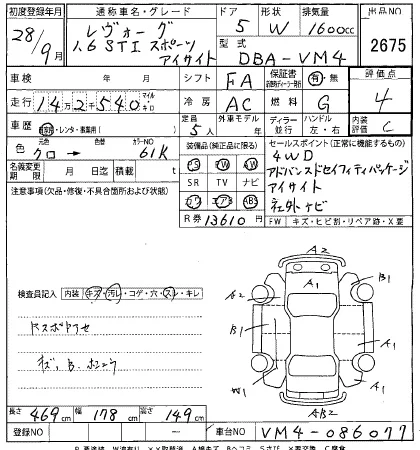 初度登録年月 通称車名・グレード ドア 形状 排気量 出品NO
28/9月 レヴォーグ 1.6 STI スポーツ アイサイト 5 W 1600cc 2675
型式 DBA-VM4
車検 年 月 シフト FA 保証書 有・無 評価点 4
走行 14万2千540 キロ 冷房 AC 燃料 G
車歴 自家用・レンタ・事業用( ) 定員 5人 外車モデル 年 ディーラー 並行 ハンドル 左・右 内装評価 C
色 元色 クロ → 色替 カラーNO 61K
名義変更 月 日迄 積載 t
注意事項(欠品・修復・不具合箇所および状態)
装備品(純正品に限る)
PS PW AW
SR TV ナビ
カワ エアB ABS
R券 13610 円
セールスポイント(正常に機能するもの)
4WD
アドバンスドセイフティパッケージ
アイサイト
社外ナビ
FW キズ・ヒビ割・リペア跡・X要
検査員記入 内装 キズ・汚レ・コゲ・穴・スレ・キレ
A2
A2 A1 B1
B1 A1
W1 A1
AB2
長さ 469(cm) 幅 178(cm) 高さ 149(cm)
登録NO 車台NO VM4-086077